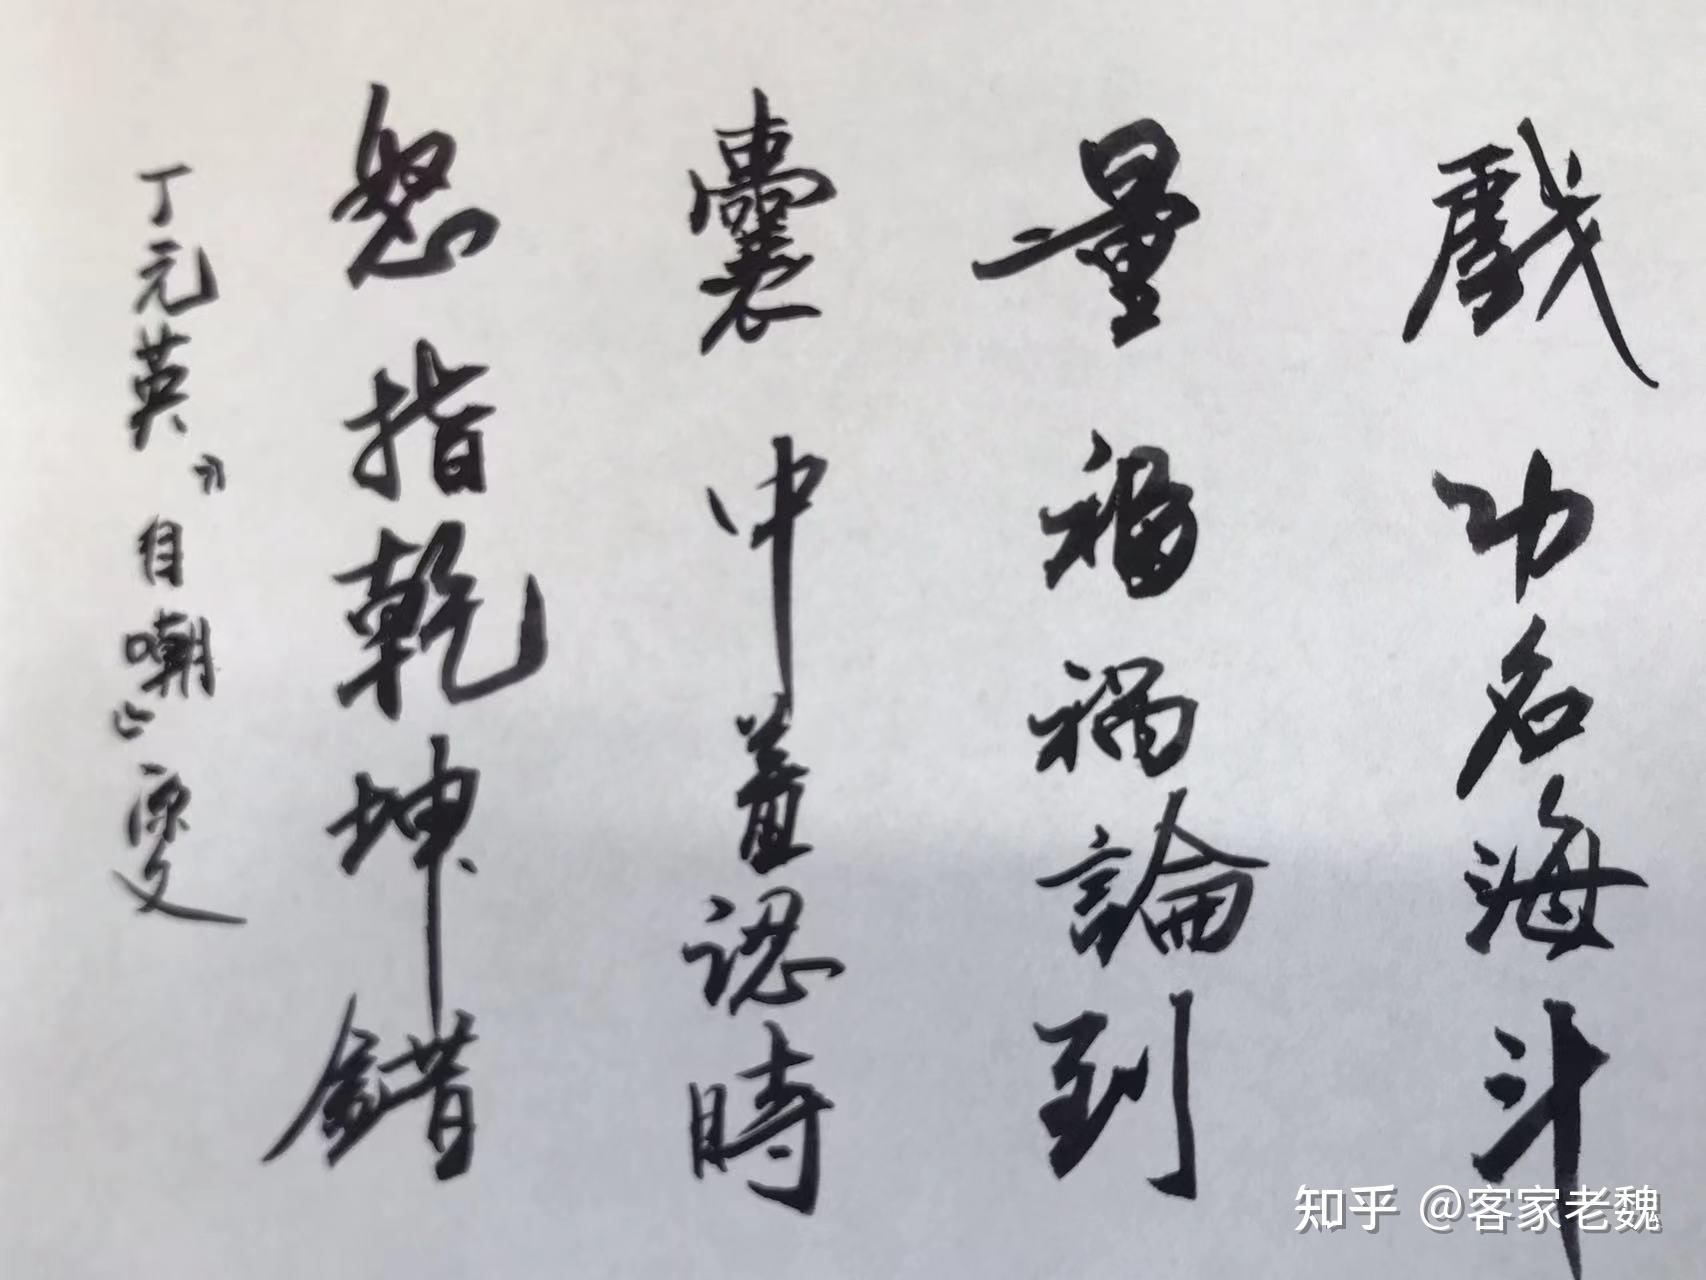 戲功名海斗
量福禍論到
囊中羞涩時
怒指乾坤錯
丁元英“自嘲”原文
知乎 @客家老魏